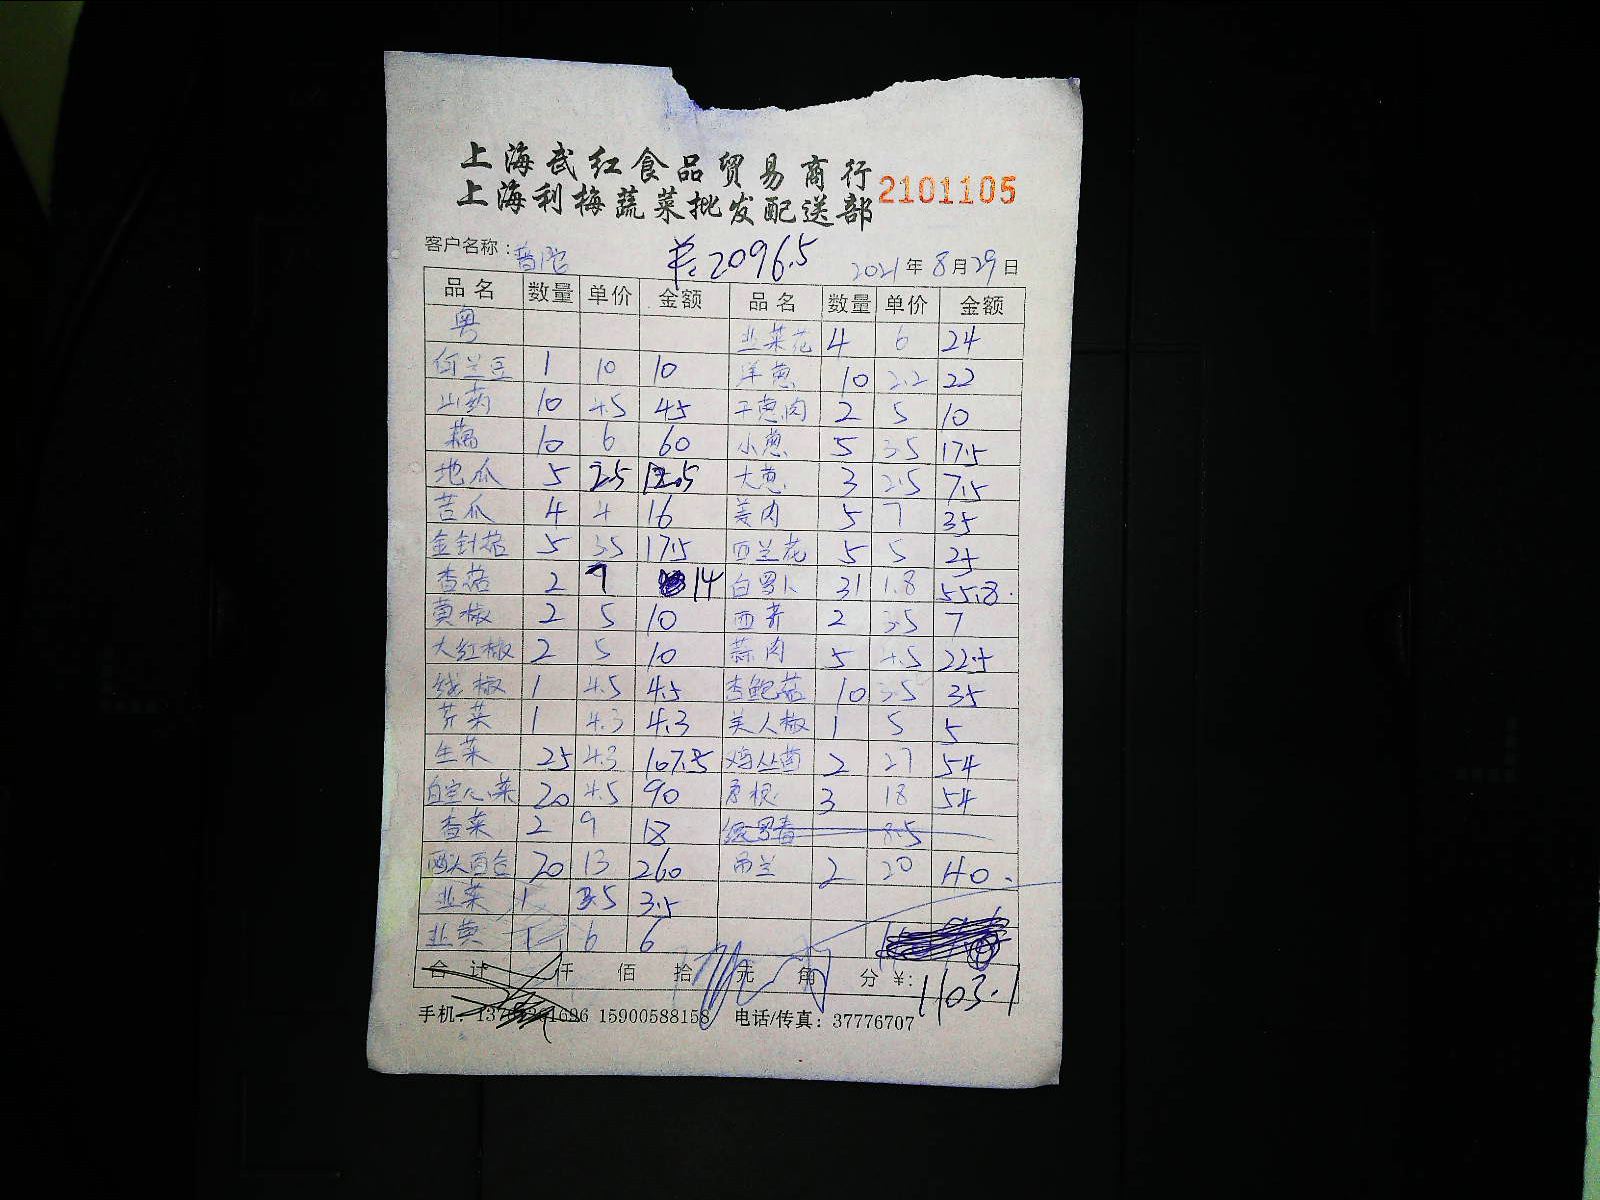 上海武红食品贸易商行
上海利梅蔬菜批发配送部 2101105
客户名称：普陀 ¥：2096.5 2021年8月29日
品名 数量 单价 金额 品名 数量 单价 金额
粤 韭菜花 4 6 24
荷兰豆 1 10 10 洋葱 10 2.2 22
山药 10 4.5 45 干葱肉 2 5 10
藕 10 6 60 小葱 5 3.5 17.5
地瓜 5 2.5 12.5 大葱 3 2.5 7.5
苦瓜 4 4 16 姜肉 5 7 35
金针菇 5 3.5 17.5 西兰花 5 5 25
香菇 2 7 14 白罗卜 31 1.8 55.8
黄椒 2 5 10 西芹 2 3.5 7
大红椒 2 5 10 蒜肉 5 4.5 22.5
线椒 1 4.5 4.5 杏鲍菇 10 3.5 35
芥菜 1 4.3 4.3 美人椒 1 5 5
生菜 25 4.3 107.5 鸡丛菌 2 27 54
白空心菜 20 4.5 90 3 18 54
香菜 2 9 18 8.5
西头百合 20 13 260 吊兰 2 20 40
韭菜 1 3.5 3.5
韭黄 1 6 6
合计 仟 佰 拾 元 角 分 ¥：1103.1
手机： 15900588158 电话/传真：37776707